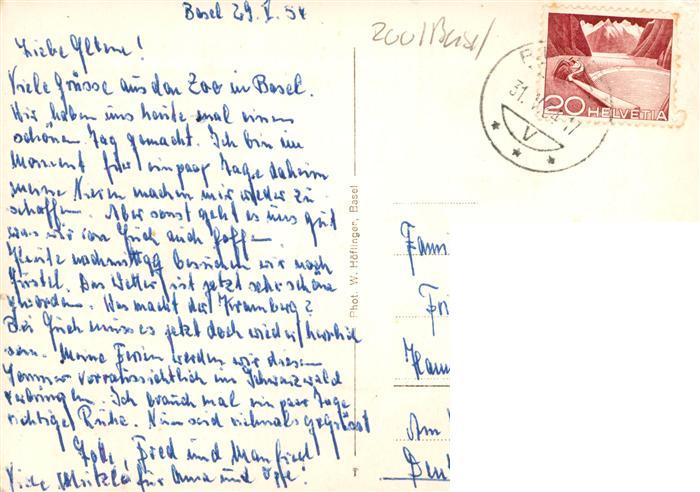 Basel 29. V. 54
Zoo/Basel
Liebe Eltern!
Viele Grüsse aus dem Zoo in Basel.
Wir haben uns heute mal einen
schönen Tag gemacht. Ich bin im
Moment für ein paar Tage daheim
meine Nieren machen mir wieder zu
schaffen. Aber sonst geht es uns gut
was wir von Euch auch hoffen
Heute nachmittag besuchen wir noch
Das Wetter ist jetzt sehr schön
geworden. Was macht der
Bei Euch muss es jetzt doch wieder herrlich
sein. Meine Ferien werden wir diesen
Sommer voraussichtlich im Schwarzwald
verbringen. Ich brauch mal ein paar Tage
richtige Ruhe. Nun seid vielmals gegrüsst
Fred und Manfred
Viele für Oma und Opa!
Phot. W. Höflinger, Basel
31. V. 54-17
V
20 HELVETIA
Fam
Am